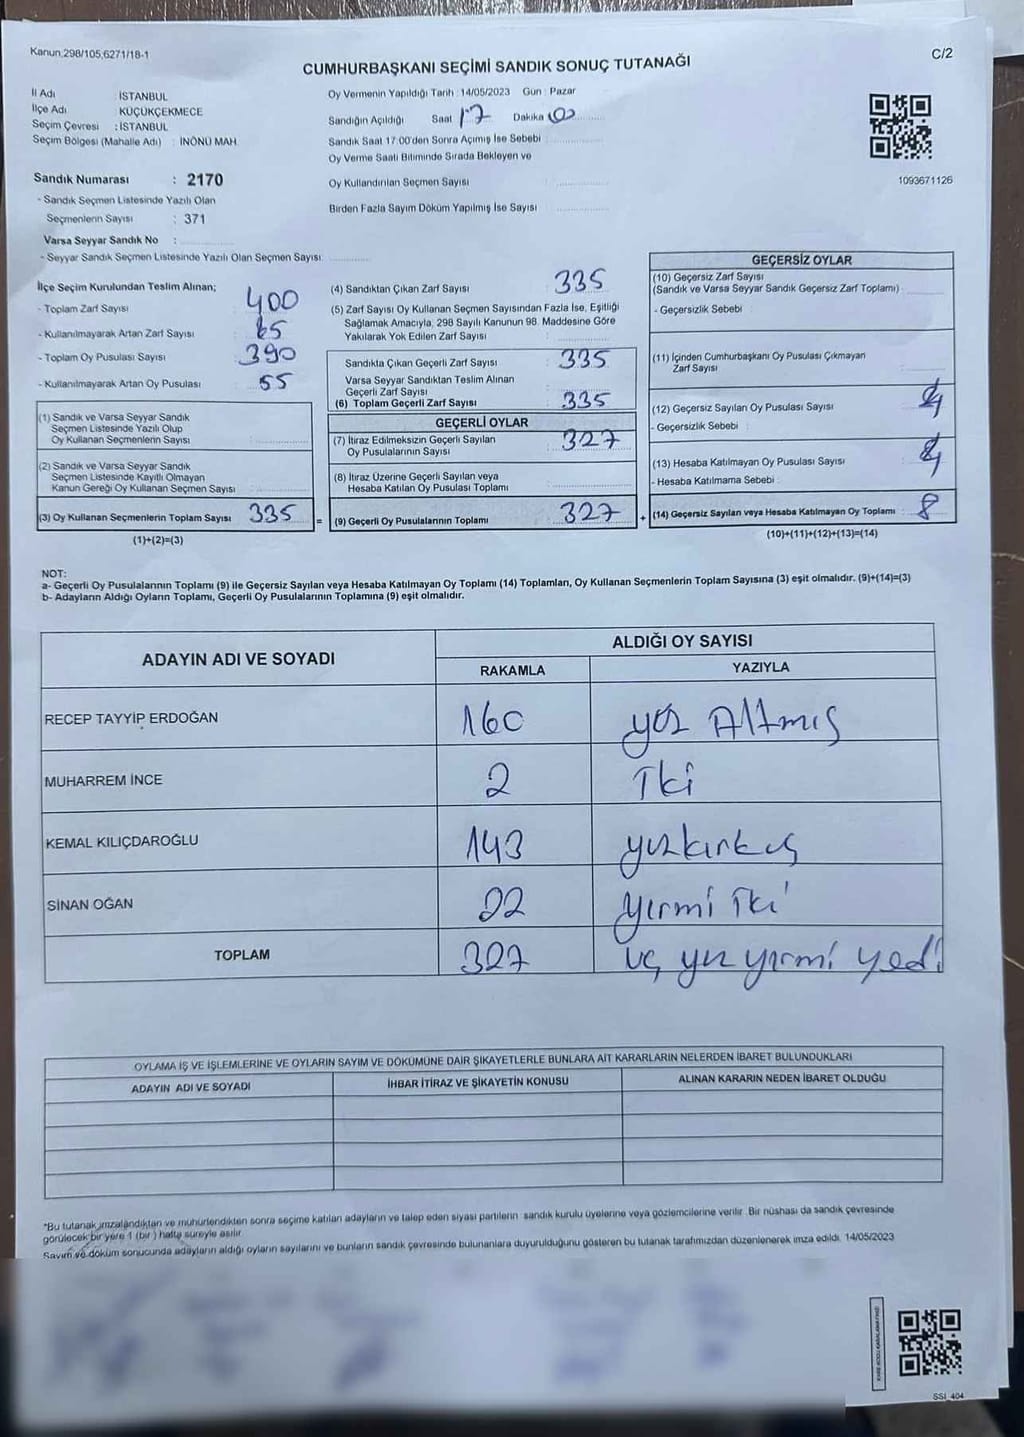 Kanun;298/105;6271/18-1
C/2
CUMHURBAŞKANI SEÇİMİ SANDIK SONUÇ TUTANAĞI
İl Adı : İSTANBUL
İlçe Adı KÜÇÜKÇEKMECE
Seçim Çevresi : İSTANBUL
Seçim Bölgesi (Mahalle Adı) : İNÖNÜ MAH.
Sandık Numarası : 2170
- Sandık Seçmen Listesinde Yazılı Olan
Seçmenlerin Sayısı : 371
Varsa Seyyar Sandık No :
- Seyyar Sandık Seçmen Listesinde Yazılı Olan Seçmen Sayısı:
Oy Vermenin Yapıldığı Tarih : 14/05/2023 Gün : Pazar
Sandığın Açıldığı Saat 17 Dakika 00
Sandık Saat 17:00'den Sonra Açımış İse Sebebi :
Oy Verme Saati Bitiminde Sırada Bekleyen ve
Oy Kullandırılan Seçmen Sayısı :
Birden Fazla Sayım Döküm Yapılmış İse Sayısı :
1093671126
İlçe Seçim Kurulundan Teslim Alınan;
- Toplam Zarf Sayısı : 400
- Kullanılmayarak Artan Zarf Sayısı : 65
- Toplam Oy Pusulası Sayısı : 390
- Kullanılmayarak Artan Oy Pusulası : 55
(1) Sandık ve Varsa Seyyar Sandık
Seçmen Listesinde Yazılı Olup
Oy Kullanan Seçmenlerin Sayısı :
(2) Sandık ve Varsa Seyyar Sandık
Seçmen Listesinde Kayıtlı Olmayan
Kanun Gereği Oy Kullanan Seçmen Sayısı :
(3) Oy Kullanan Seçmenlerin Toplam Sayısı : 335
(1)+(2)=(3)
(4) Sandıktan Çıkan Zarf Sayısı : 335
(5) Zarf Sayısı Oy Kullanan Seçmen Sayısından Fazla İse, Eşitliği
Sağlamak Amacıyla, 298 Sayılı Kanunun 98. Maddesine Göre
Yakılarak Yok Edilen Zarf Sayısı :
Sandıkta Çıkan Geçerli Zarf Sayısı : 335
Varsa Seyyar Sandıktan Teslim Alınan
Geçerli Zarf Sayısı :
(6) Toplam Geçerli Zarf Sayısı : 335
GEÇERLİ OYLAR
(7) İtiraz Edilmeksizin Geçerli Sayılan
Oy Pusulalarının Sayısı : 327
(8) İtiraz Üzerine Geçerli Sayılan veya
Hesaba Katılan Oy Pusulası Toplamı :
= (9) Geçerli Oy Pusulalarının Toplamı : 327 +
GEÇERSİZ OYLAR
(10) Geçersiz Zarf Sayısı
(Sandık ve Varsa Seyyar Sandık Geçersiz Zarf Toplamı) :
- Geçersizlik Sebebi :
(11) İçinden Cumhurbaşkanı Oy Pusulası Çıkmayan
Zarf Sayısı :
(12) Geçersiz Sayılan Oy Pusulası Sayısı :
- Geçersizlik Sebebi :
(13) Hesaba Katılmayan Oy Pusulası Sayısı :
- Hesaba Katılmama Sebebi :
(14) Geçersiz Sayılan veya Hesaba Katılmayan Oy Toplamı : 8
(10)+(11)+(12)+(13)=(14)
NOT:
a- Geçerli Oy Pusulalarının Toplamı (9) ile Geçersiz Sayılan veya Hesaba Katılmayan Oy Toplamı (14) Toplamları, Oy Kullanan Seçmenlerin Toplam Sayısına (3) eşit olmalıdır. (9)+(14)=(3)
b- Adayların Aldığı Oyların Toplamı, Geçerli Oy Pusulalarının Toplamına (9) eşit olmalıdır.
ADAYIN ADI VE SOYADI
ALDIĞI OY SAYISI
RAKAMLA YAZIYLA
RECEP TAYYİP ERDOĞAN 160 yüz Altmış
MUHARREM İNCE 2 İki
KEMAL KILIÇDAROĞLU 143 yüzkırküç
SİNAN OĞAN 22 yirmi iki
TOPLAM 327 üç yüz yirmi yedi
OYLAMA İŞ VE İŞLEMLERİNE VE OYLARIN SAYIM VE DÖKÜMÜNE DAİR ŞİKAYETLERLE BUNLARA AİT KARARLARIN NELERDEN İBARET BULUNDUKLARI
ADAYIN ADI VE SOYADI İHBAR İTİRAZ VE ŞİKAYETİN KONUSU ALINAN KARARIN NEDEN İBARET OLDUĞU
*Bu tutanak imzalandıktan ve mühürlendikten sonra seçime katılan adayların ve talep eden siyasi partilerin sandık kurulu üyelerine veya gözlemcilerine verilir. Bir nüshası da sandık çevresinde
görülecek bir yere 1 (bir) hafta süreyle asılır.
Sayım ve döküm sonucunda adayların aldığı oyların sayılarını ve bunların sandık çevresinde bulunanlara duyurulduğunu gösteren bu tutanak tarafımızdan düzenlenerek imza edildi. 14/05/2023
SSİ_404